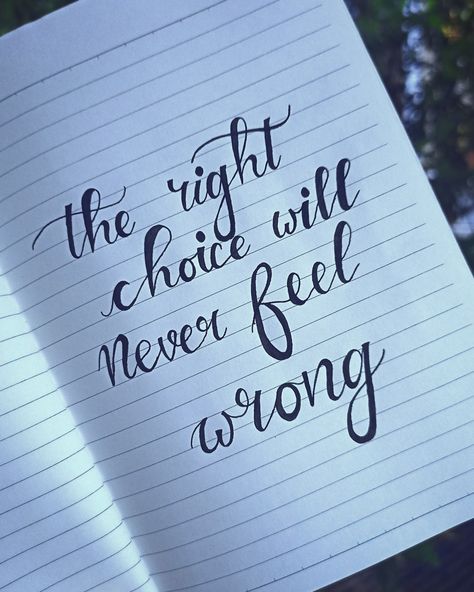 the right
choice will
never feel
wrong